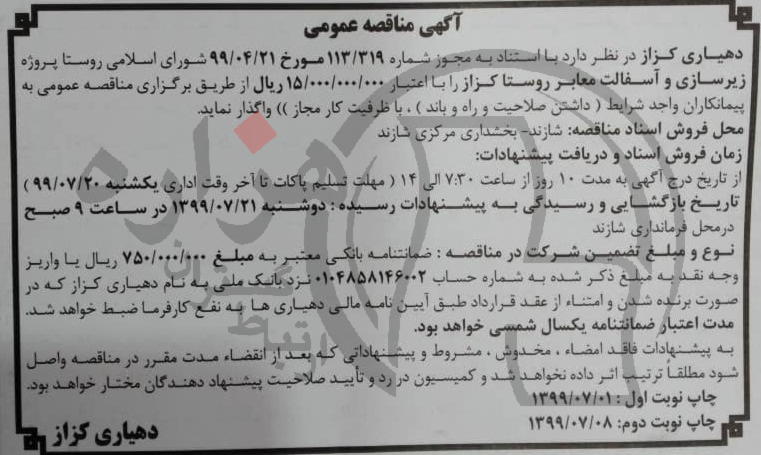 آگهی مناقصه عمومی
دهیاری کزاز در نظر دارد با استناد به مجوز شماره ۱۱۳/۳۱۹ مورخ ۹۹/۰۴/۲۱ شورای اسلامی روستا پروژه
زیرسازی و آسفالت معابر روستا کزاز را با اعتبار ۱۵/۰۰۰/۰۰۰/۰۰۰ ریال از طریق برگزاری مناقصه عمومی به
پیمانکاران واجد شرایط ( داشتن صلاحیت و راه و باند ) ، با ظرفیت کار مجاز )) واگذار نماید.
محل فروش اسناد مناقصه: شازند- بخشداری مرکزی شازند
زمان فروش اسناد و دریافت پیشنهادات:
از تاریخ درج آگهی به مدت ۱۰ روز از ساعت ۷:۳۰ الی ۱۴ ( مهلت تسلیم پاکات تا آخر وقت اداری یکشنبه ۹۹/۰۷/۲۰ )
تاریخ بازگشایی و رسیدگی به پیشنهادات رسیده : دوشنبه ۱۳۹۹/۰۷/۲۱ در ساعت ۹ صبح
درمحل فرمانداری شازند
نوع و مبلغ تضمین شرکت در مناقصه : ضمانتنامه بانکی معتبر به مبلغ ۷۵۰/۰۰۰/۰۰۰ ریال یا واریز
وجه نقد به مبلغ ذکر شده به شماره حساب ۰۱۰۴۸۵۸۱۴۶۰۰۲ نزد بانک ملی به نام دهیاری کزاز که در
صورت برنده شدن و امتناء از عقد قرارداد طبق آیین نامه مالی دهیاری ها به نفع کارفرما ضبط خواهد شد.
مدت اعتبار ضمانتنامه یکسال شمسی خواهد بود.
به پیشنهادات فاقد امضاء ، مخدوش ، مشروط و پیشنهاداتی که بعد از انقضاء مدت مقرر در مناقصه واصل
شود مطلقاً ترتیب اثر داده نخواهد شد و کمیسیون در رد و تأیید صلاحیت پیشنهاد دهندگان مختار خواهد بود.
چاپ نوبت اول : ۱۳۹۹/۰۷/۰۱
چاپ نوبت دوم: ۱۳۹۹/۰۷/۰۸
دهیاری کزاز
هزاره
گستران
ارتباط